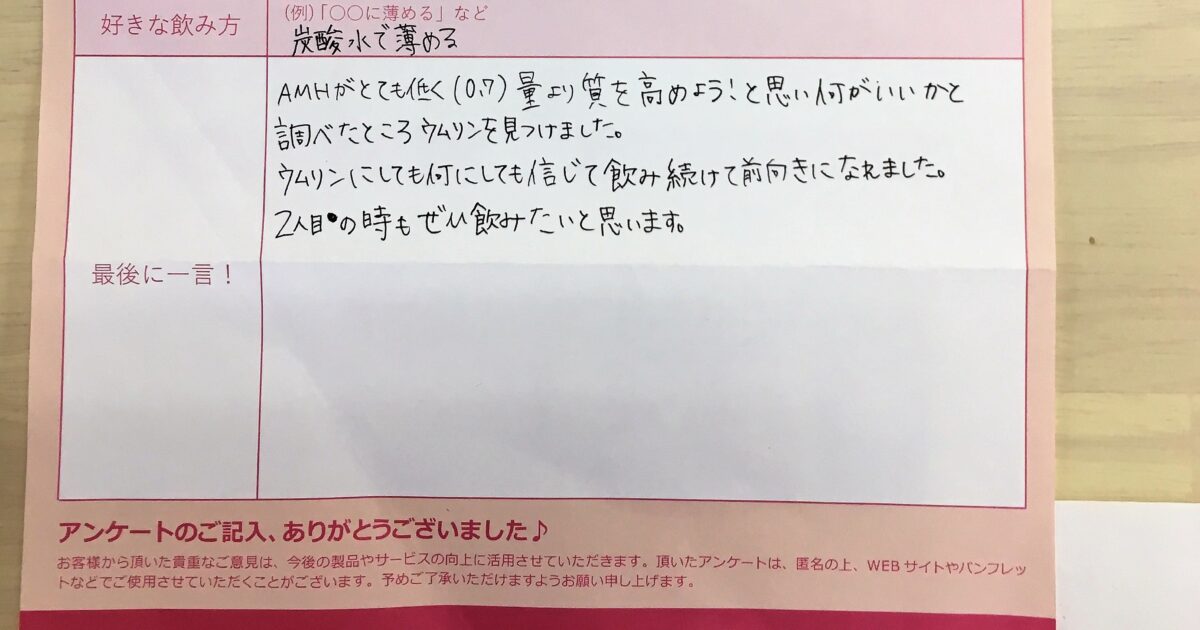 好きな飲み方
(例)「〇〇に薄める」など
炭酸水で薄める
AMHがとても低く(0.7)量より質を高めよう!と思い何がいいかと
調べたところウムリンを見つけました。
ウムリンにしても何にしても信じて飲み続けて前向きになれました。
2人目の時もぜひ飲みたいと思います。
最後に一言!
アンケートのご記入、ありがとうございました♪
お客様から頂いた貴重なご意見は、今後の製品やサービスの向上に活用させていただきます。頂いたアンケートは、匿名の上、WEBサイトやパンフレッ
トなどでご使用させていただくことがございます。予めご了承いただけますようお願い申し上げます。